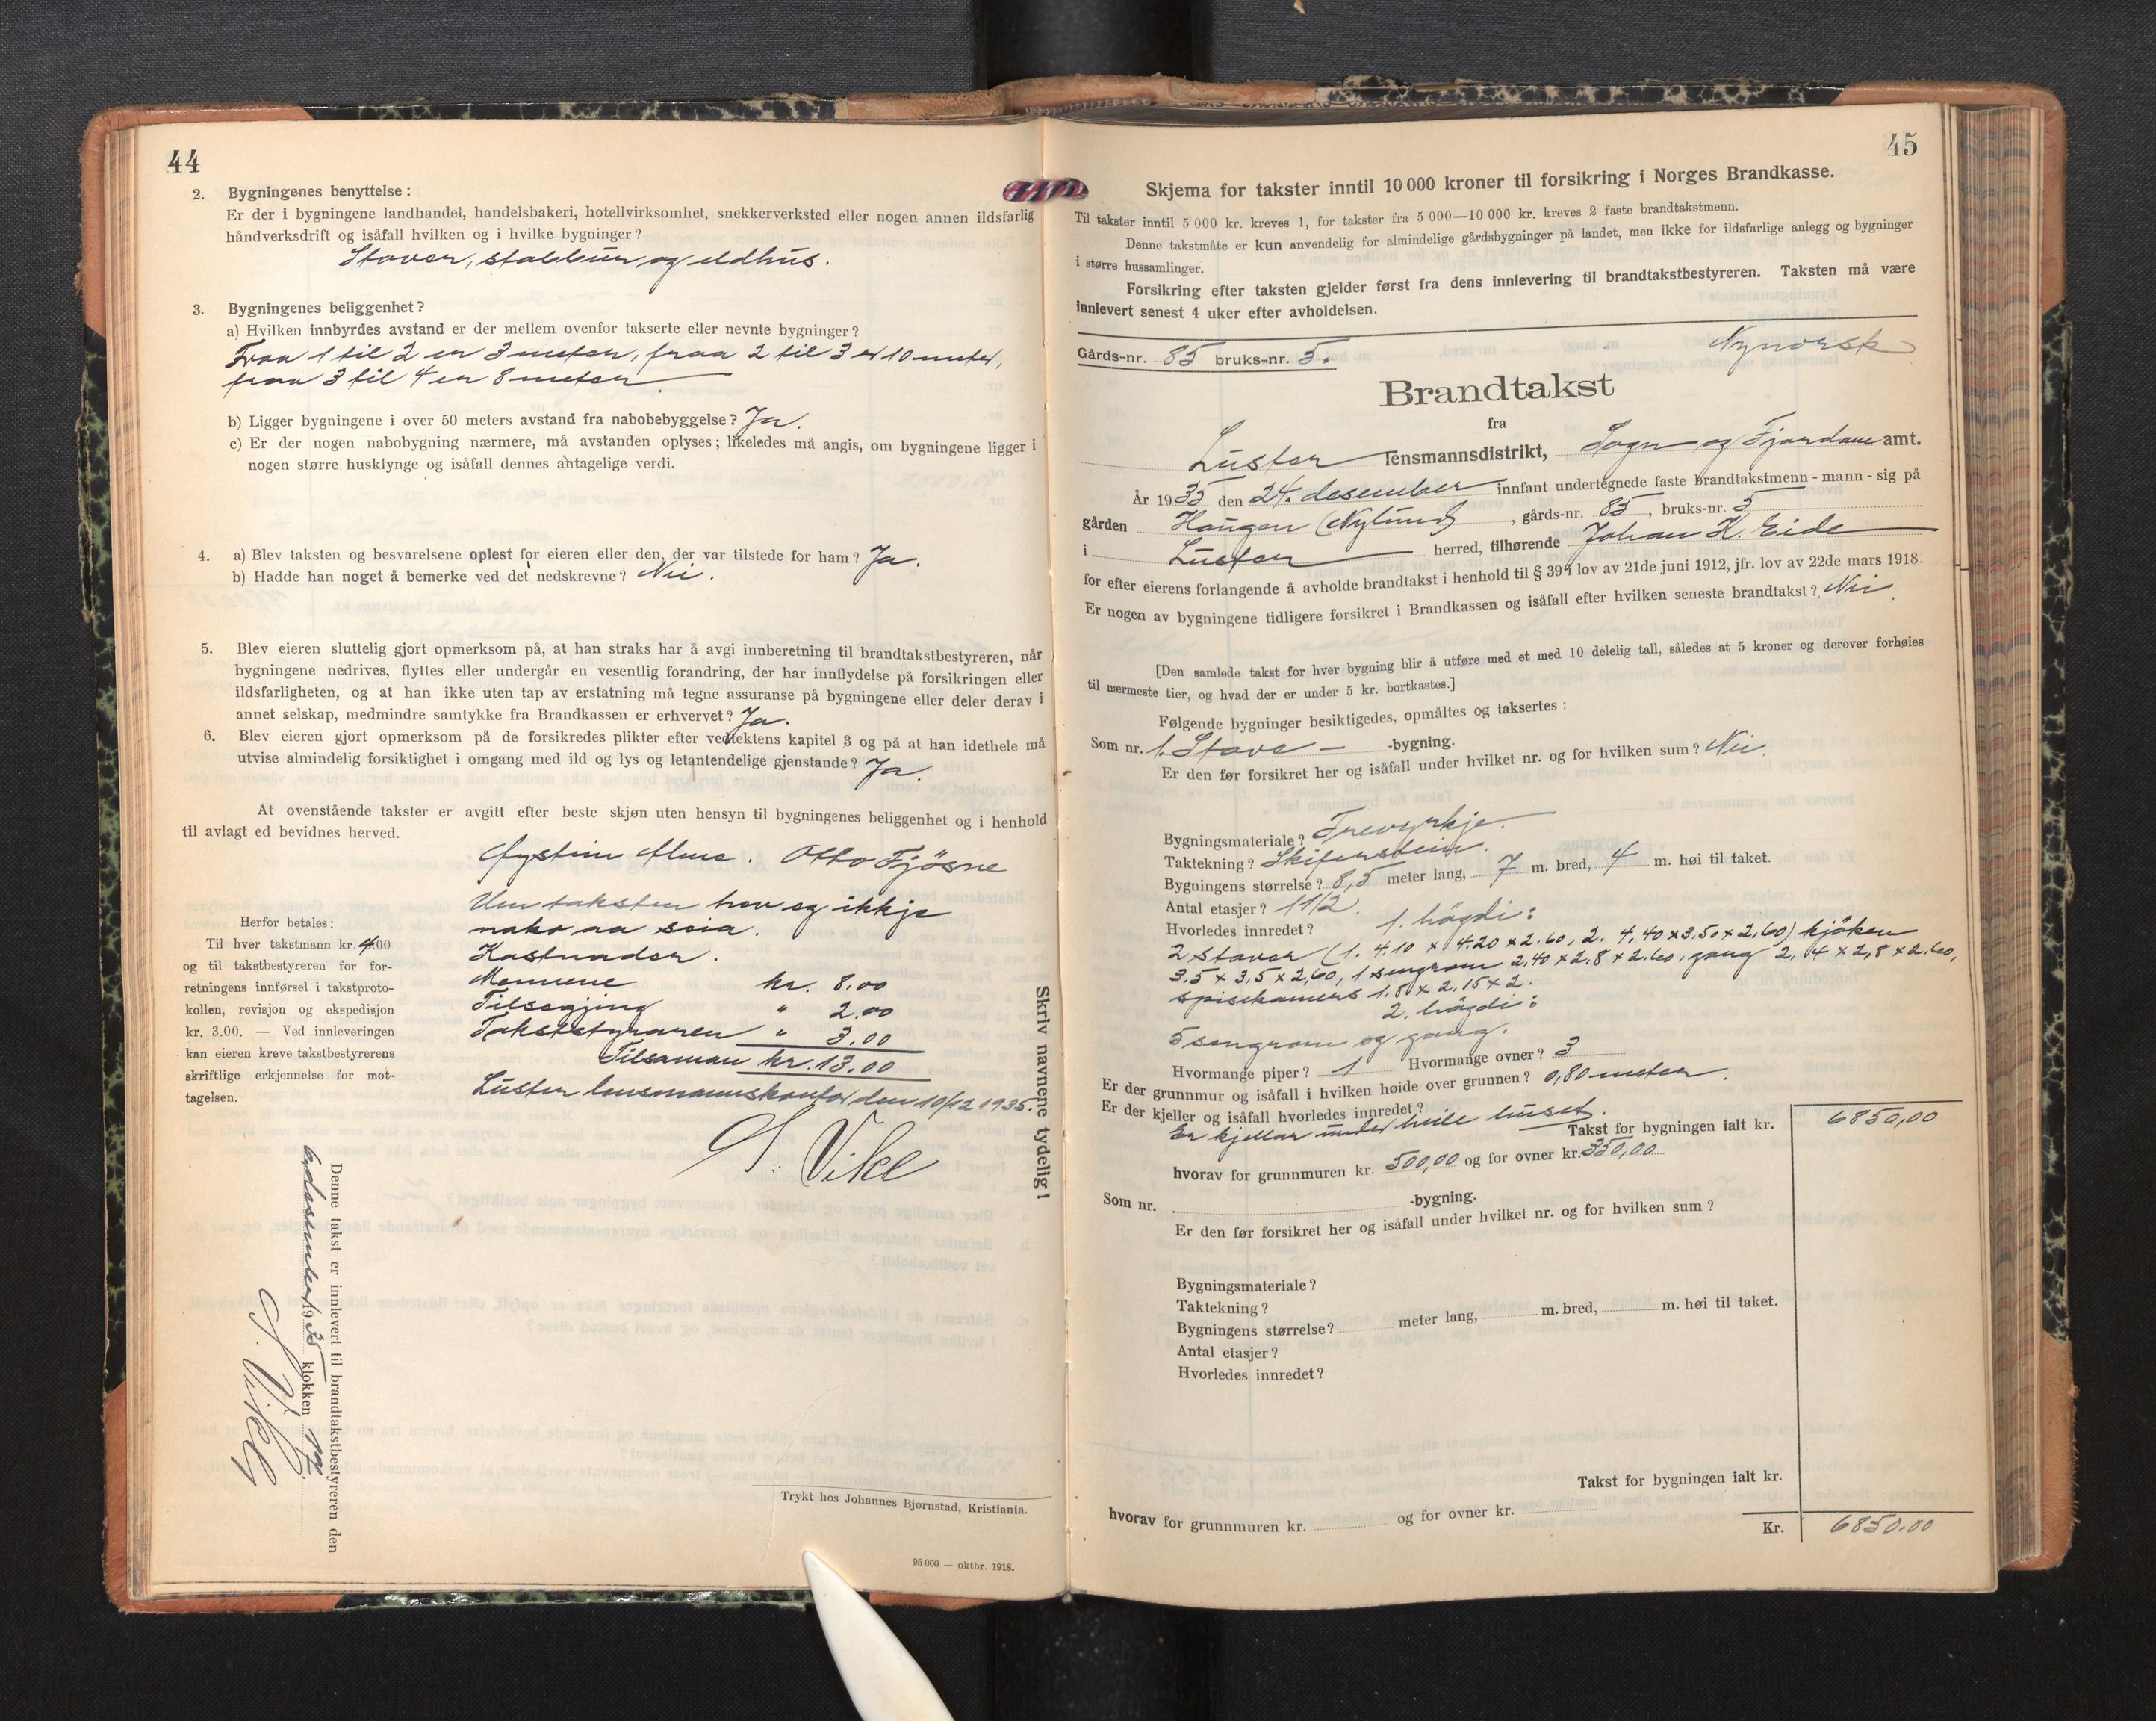 44
2. Bygningenes benyttelse:
Er der i bygningene landhandel, handelsbakeri, hotellvirksomhet, snekkerverksted eller nogen annen ildsfarlig
håndverksdrift og isåfall hvilken og i hvilke bygninger?
Stover, stabbur og eldhus.
3. Bygningenes beliggenhet?
a) Hvilken innbyrdes avstand er der mellem ovenfor takserte eller nevnte bygninger?
Fraa 1 til 2 er 3 meter, fraa 2 til 3 er 10 meter,
fraa 3 til 4 er 8 meter
b) Ligger bygningene i over 50 meters avstand fra nabobebyggelse? Ja.
c) Er der nogen nabobygning nærmere, må avstanden oplyses; likeledes må angis, om bygningene ligger i
nogen større husklynge og isåfall dennes antagelige verdi.
4. a) Blev taksten og besvarelsene oplest for eieren eller den, der var tilstede for ham? Ja.
b) Hadde han noget å bemerke ved det nedskrevne? Nei.
5. Blev eieren sluttelig gjort opmerksom på, at han straks har å avgi innberetning til brandtakstbestyreren, når
bygningene nedrives, flyttes eller undergår en vesentlig forandring, der har innflydelse på forsikringen eller
ildsfarligheten, og at han ikke uten tap av erstatning må tegne assuranse på bygningene eller deler derav i
annet selskap, medmindre samtykke fra Brandkassen er erhvervet? Ja.
6. Blev eieren gjort opmerksom på de forsikredes plikter efter vedtektens kapitel 3 og på at han idethele må
utvise almindelig forsiktighet i omgang med ild og lys og letantendelige gjenstande? Ja.
At ovenstående takster er avgitt efter beste skjøn uten hensyn til bygningenes beliggenhet og i henhold
til avlagt ed bevidnes herved.
Øystein Otto Fjösne
Um taksten hev eg ikkje
noko aa seia.
Kostnader.
Mennene kr. 8.00
Tilsegjing " 2.00
Takststyraren " 3.00
Tilsaman kr. 13.00
Luster lensmannskontor den 10/12 1935.
S. Vike
Herfor betales:
Til hver takstmann kr. 4.00
og til takstbestyreren for for-
retningens innførsel i takstproto-
kollen, revisjon og ekspedisjon
kr. 3.00. — Ved innleveringen
kan eieren kreve takstbestyrerens
skriftlige erkjennelse for mot-
tagelsen.
Skriv navnene tydelig!
Denne takst er innlevert til brandtakstbestyreren den
desember 1935 klokken 12
S. Vike
Trykt hos Johannes Bjørnstad, Kristiania.
95 000 — oktbr. 1918.
45
Skjema for takster inntil 10 000 kroner til forsikring i Norges Brandkasse.
Til takster inntil 5 000 kr. kreves 1, for takster fra 5 000—10 000 kr. kreves 2 faste brandtakstmenn.
Denne takstmåte er kun anvendelig for almindelige gårdsbygninger på landet, men ikke for ildsfarlige anlegg og bygninger
i større hussamlinger.
Forsikring efter taksten gjelder først fra dens innlevering til brandtakstbestyreren. Taksten må være
innlevert senest 4 uker efter avholdelsen.
Gårds-nr. 85 bruks-nr. 5.
Nynorsk
Brandtakst
fra
Luster lensmannsdistrikt, Sogn og Fjordane amt.
År 1935 den 24. desember innfant undertegnede faste brandtakstmenn - mann - sig på
gården Haugen (Nylund) , gårds-nr. 85, bruks-nr. 5
i Luster herred, tilhørende Johan K. Eide
for efter eierens forlangende å avholde brandtakst i henhold til § 39 i lov av 21de juni 1912, jfr. lov av 22de mars 1918.
Er nogen av bygningene tidligere forsikret i Brandkassen og isåfall efter hvilken seneste brandtakst? Nei.
[Den samlede takst for hver bygning blir å utføre med et med 10 delelig tall, således at 5 kroner og derover forhøies
til nærmeste tier, og hvad der er under 5 kr. bortkastes.]
Følgende bygninger besiktigedes, opmåltes og taksertes:
Som nr. 1. Stove - -bygning.
Er den før forsikret her og isåfall under hvilket nr. og for hvilken sum? Nei.
Bygningsmateriale? Trevyrkje.
Taktekning? Skiferstein.
Bygningens størrelse? 8,5 meter lang, 7 m. bred, 4 m. høi til taket.
Antal etasjer? 1 1/2.
Hvorledes innredet? 1. högdi:
2 stover (1. 4.10 x 4.20 x 2.60, 2. 4.40 x 3.50 x 2.60) kjöken
3,5 x 3,5 x 2,60, 1 sengrom 2,40 x 2,8 x 2.60, gang 2,4 x 2,8 x 2.60,
spisekamers 1,8 x 2,15 x 2.
2. högdi:
5 sengrom og gang.
Hvormange piper? 1 Hvormange ovner? 3
Er der grunnmur og isåfall i hvilken høide over grunnen? 0,80 meter.
Er der kjeller og isåfall hvorledes innredet?
Er kjellar under heile huset.
Takst for bygningen ialt kr. 6850,00
hvorav for grunnmuren kr. 500,00 og for ovner kr. 350,00
Som nr. -bygning.
Er den før forsikret her og isåfall under hvilket nr. og for hvilken sum?
Bygningsmateriale?
Taktekning?
Bygningens størrelse? meter lang, m. bred, m. høi til taket.
Antal etasjer?
Hvorledes innredet?
Takst for bygningen ialt kr.
hvorav for grunnmuren kr. og for ovner kr.
Kr. 6850.00